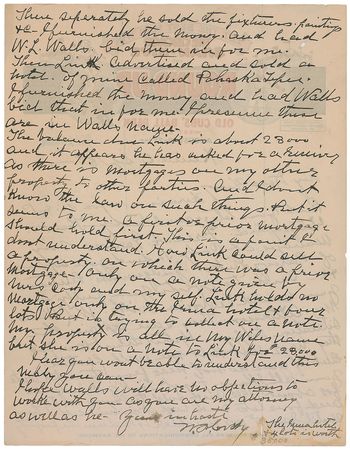 Then seperately he sold the fixtures. paintings
&c - I furnished the money. and had
W. L. Walls. bid them in for me.
Then Link advertised and sold a
hotel. of mine called Pahaska Tepee.
I furnished the money and had Walls
bid that in for me. I presume these
are in Walls name.
The balance due Link is about 28000
and it appears he has asked for a
as there is mortgages on my other
property to other parties. And I dont
know the law on such things. But it
seems to me. a first or prior mortgage
should hold first. This is a point I
dont understand. How Link could sell
a property. on which there was a prior
mortgage - only on a note given by
Mrs Cody and my self. Link holds no
mortgage only on the Irma hotel & four
lots. But is trying to collect on a note.
My property is all in My Wifes name
but she is on a note to Link for 28,000
I fear you wont be able to understand this
I hope Walls will have no objections to
work with you - as you are my attorney
as well as he - Yours in haste
W F Cody
The Irma hotel
& 4 lots is worth